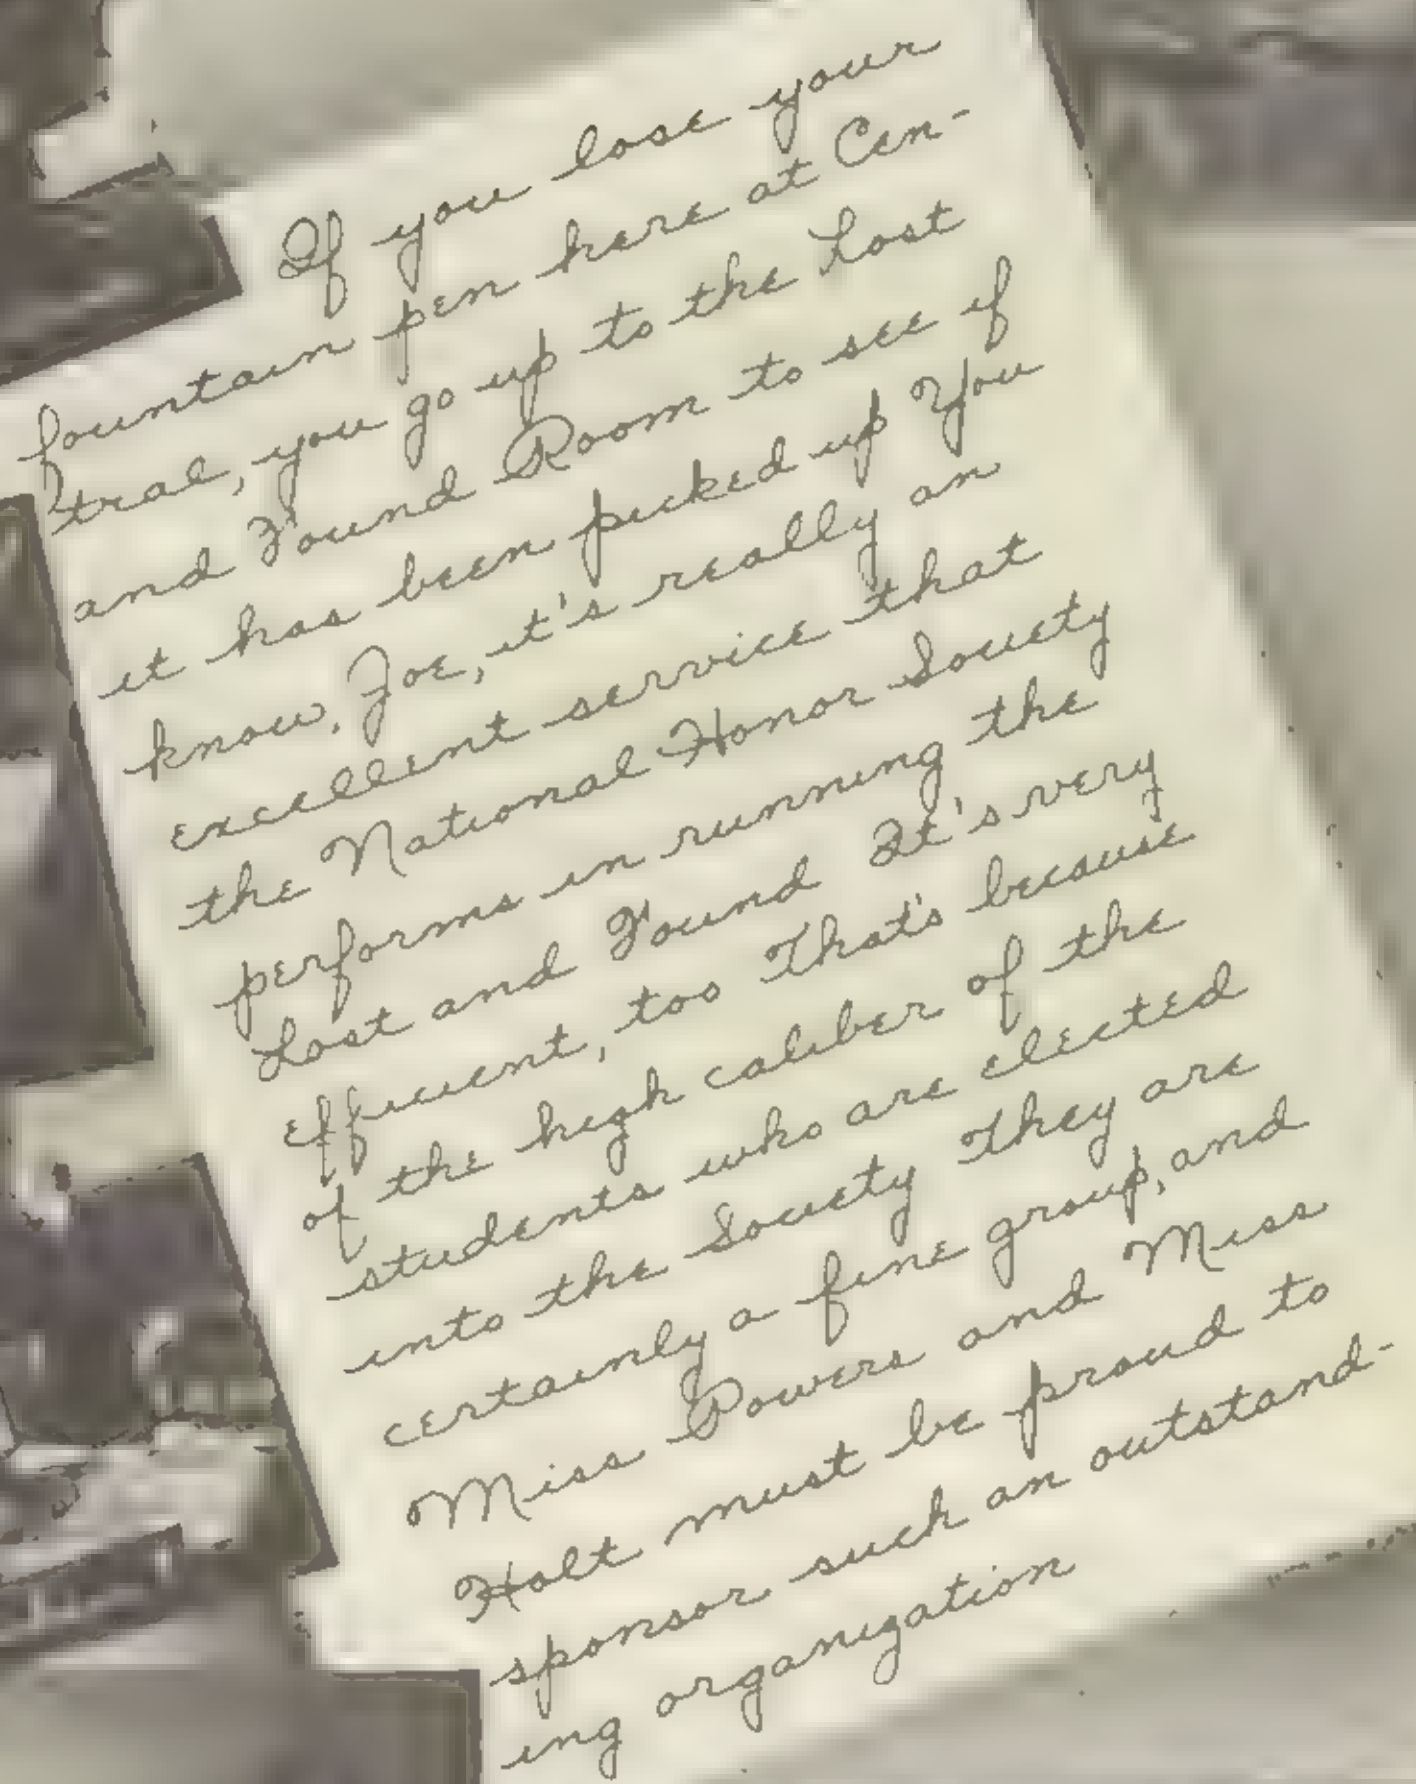 If you lose your
fountain pen here at Cen-
tral, you go up to the Lost
and Found Room to see if
it has been picked up You
know, Joe, it's really an
excellent service that
the National Honor Society
performs in running the
Lost and Found It's very
efficient, too That's because
of the high caliber of the
students who are elected
into the Society They are
certainly a fine group, and
Miss Powers and Miss
Holt must be proud to
sponsor such an outstand-
ing organization